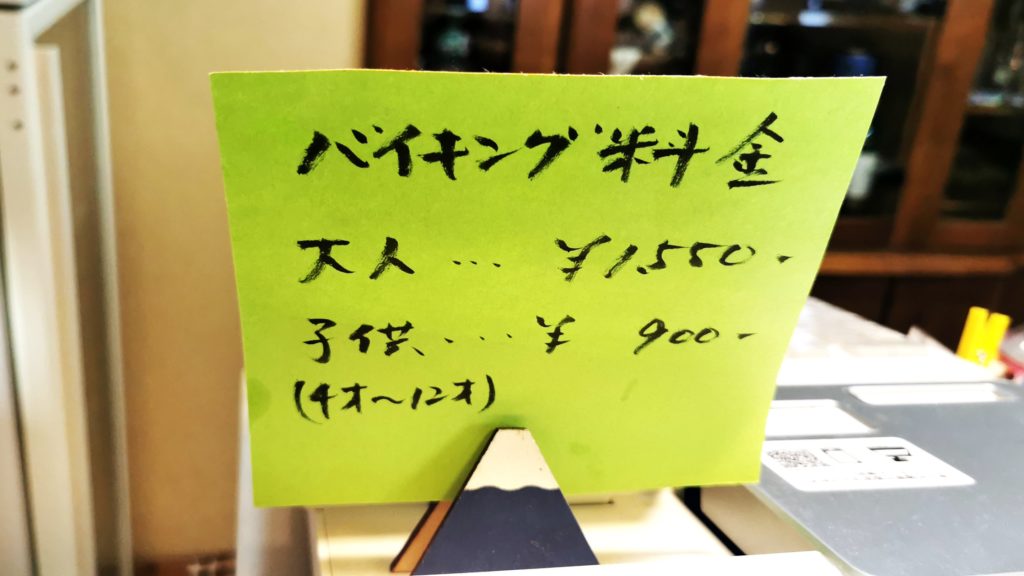 バイキング料金
大人… ¥1,550-
子供‥‥ ¥ 900-
(4才〜12才)